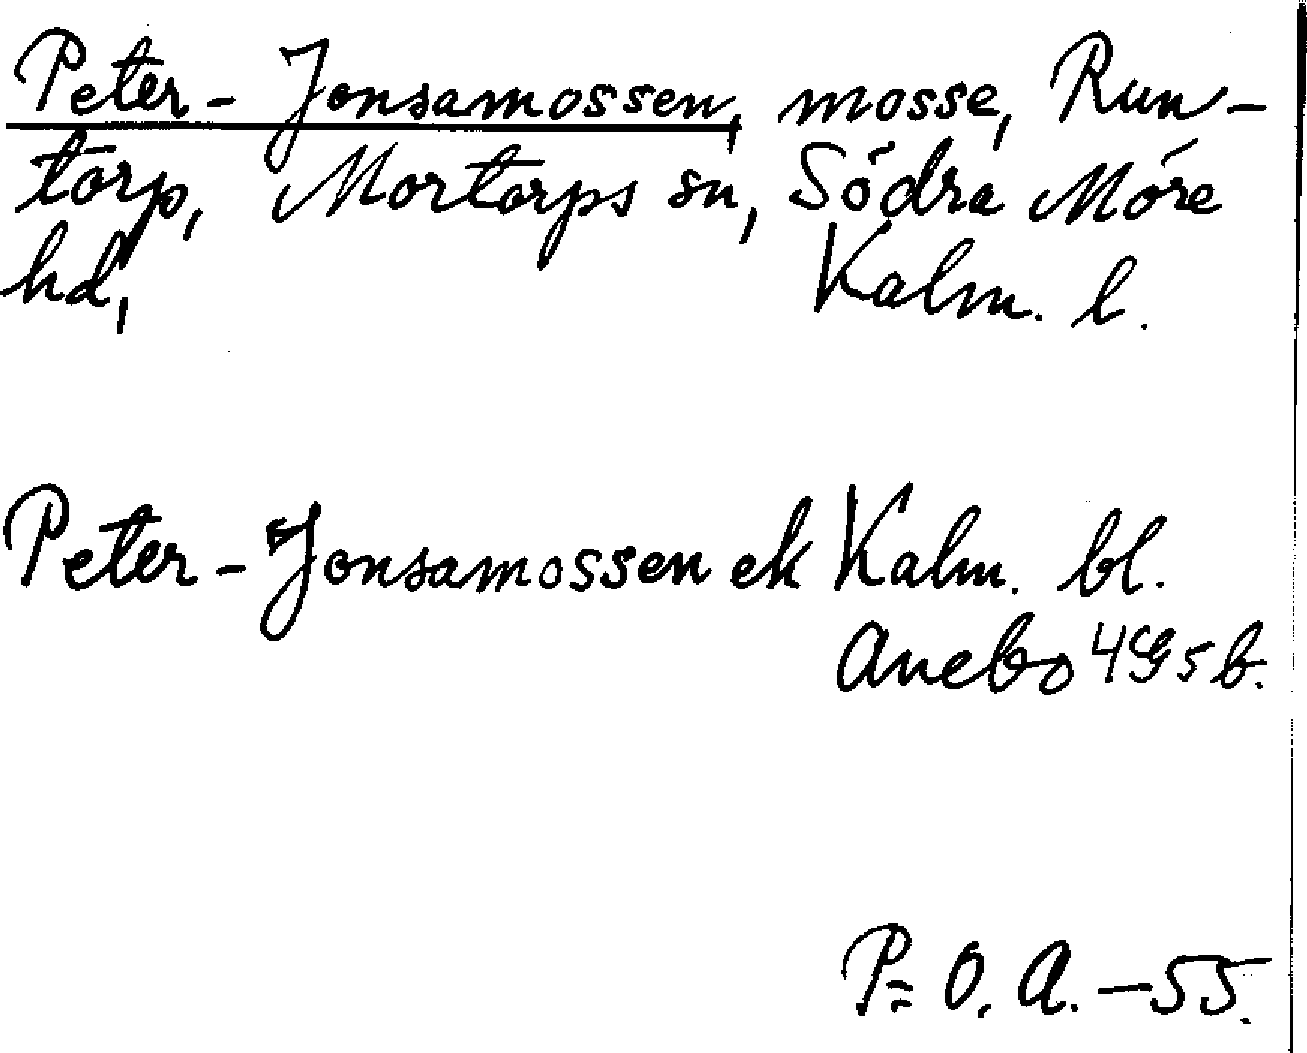 Peter-Jonsamossen, mosse, Run-
torp, Mortorps sn, Södra Möre
hd, Kalm. l.
Peter-Jonsamossen ek Kalm. bl.
Anebo 4G5b.
P= O. A. -55.